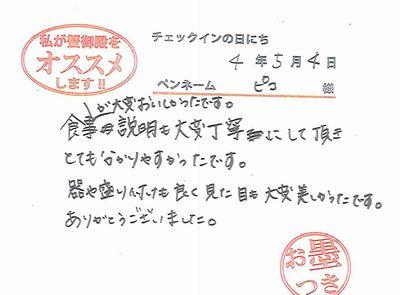 私が蟹御殿を
オススメ
します!!
チェックインの日にち
4年5月4日
ペンネーム ピコ 様
が大変おいしかったです。
食事 説明も大変丁寧にして頂き
とても分かりやすかったです。
器や盛り付けも良く見た目も大変美しかったです。
ありがとうございました。
お墨
つき